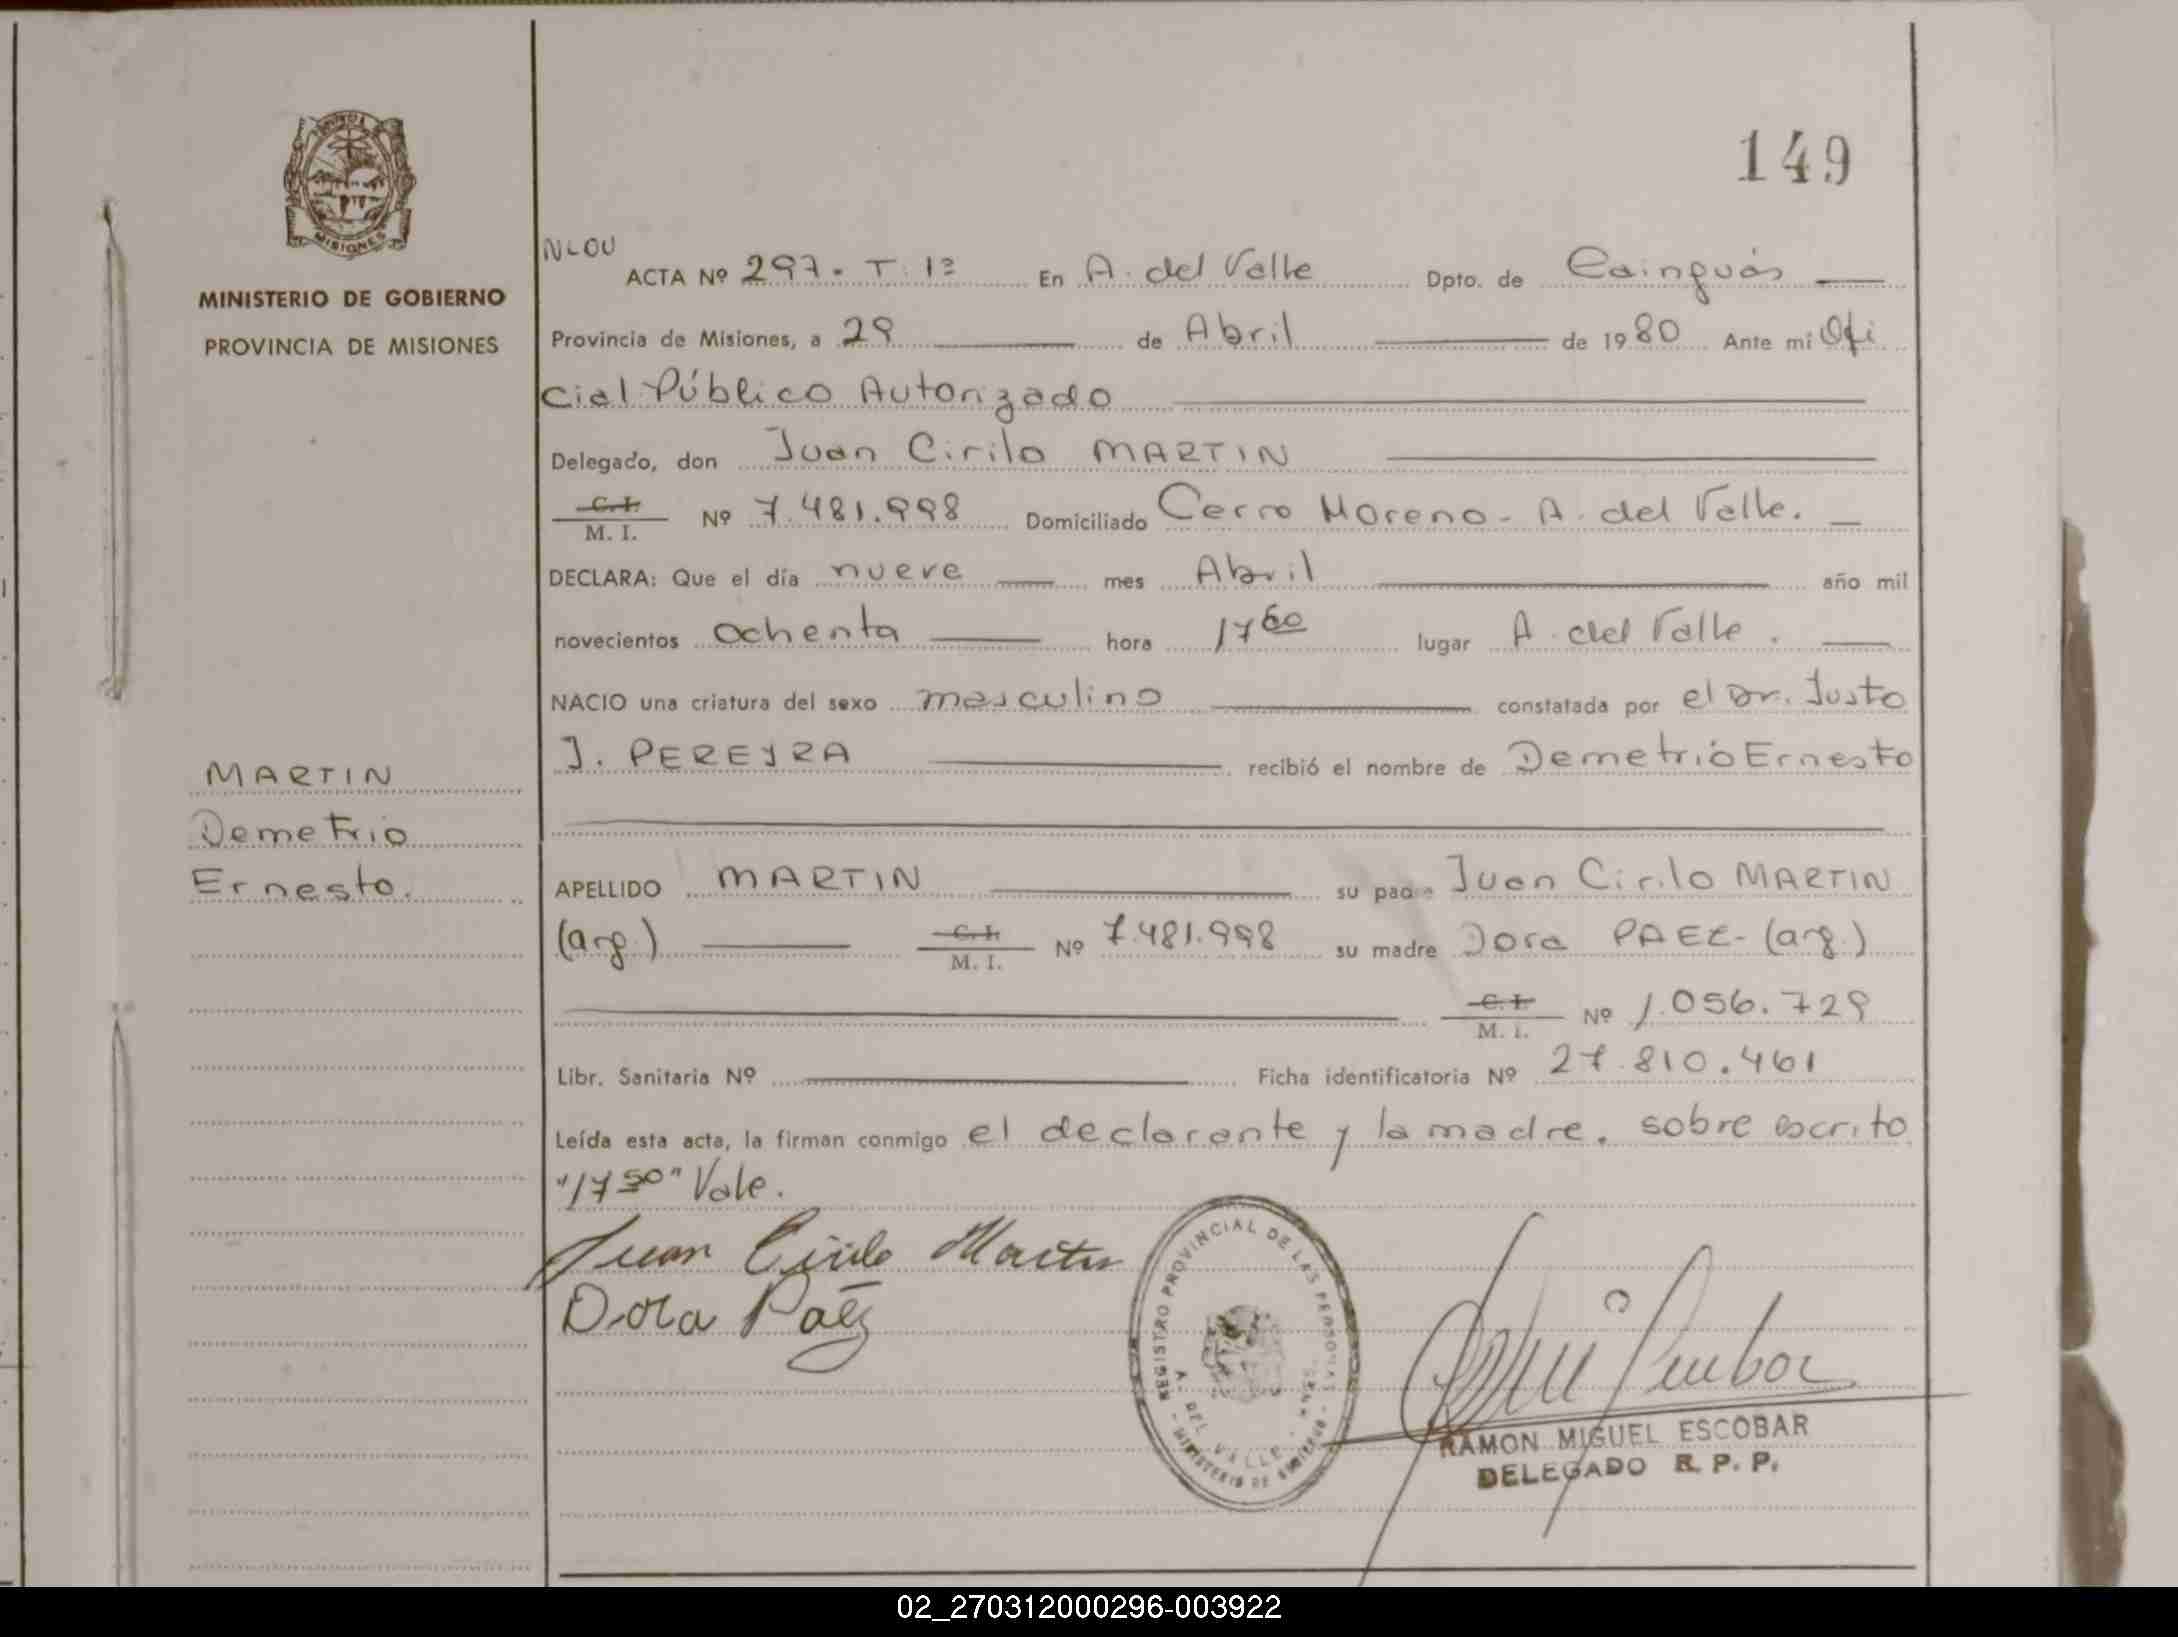 149
PROVINCIA DE
MISIONES
MINISTERIO DE GOBIERNO
PROVINCIA DE MISIONES
MARTIN
Demetrio
Ernesto.
NLOU
ACTA Nº 297. T. 1º En A. del Valle Dpto. de Cainguás
Provincia de Misiones, a 29 de Abril de 1980 Ante mi Ofi
cial Público Autorizado
Delegado, don Juan Cirilo MARTIN
C. I.
M. I. Nº 7.481.998 Domiciliado Cerro Moreno - A. del Valle.
DECLARA: Que el día nueve mes Abril año mil
novecientos ochenta hora 17 lugar A. del Valle.
NACIO una criatura del sexo masculino constatada por el Dr. Justo
J. PEREYRA recibió el nombre de Demetrio Ernesto
APELLIDO MARTIN su padre Juan Cirilo MARTIN
(arg.) C. I.
M. I. Nº 7.481.998 su madre Dora PAEZ - (arg.)
C. I.
M. I. Nº 1.056.729
Libr. Sanitaria Nº Ficha identificatoria Nº 27.810.461
Leída esta acta, la firman conmigo el declarante y la madre. sobre escrito
"17 50" Vale.
Juan Cirilo Martin
Dora Paéz
REGISTRO PROVINCIAL DE LAS PERSONAS
A. DEL VALLE - MNES.
- MINISTERIO DE GOBIERNO -
RAMON MIGUEL ESCOBAR
DELEGADO R. P. P.
02_270312000296-003922